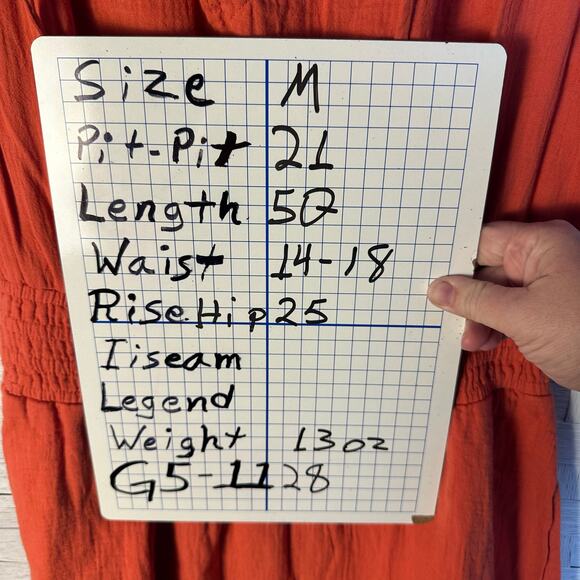 Size M
Pit-Pit 21
Length 50
Waist 14-18
Rise Hip 25
Iiseam
Legend
Weight 13oz
G5-1128